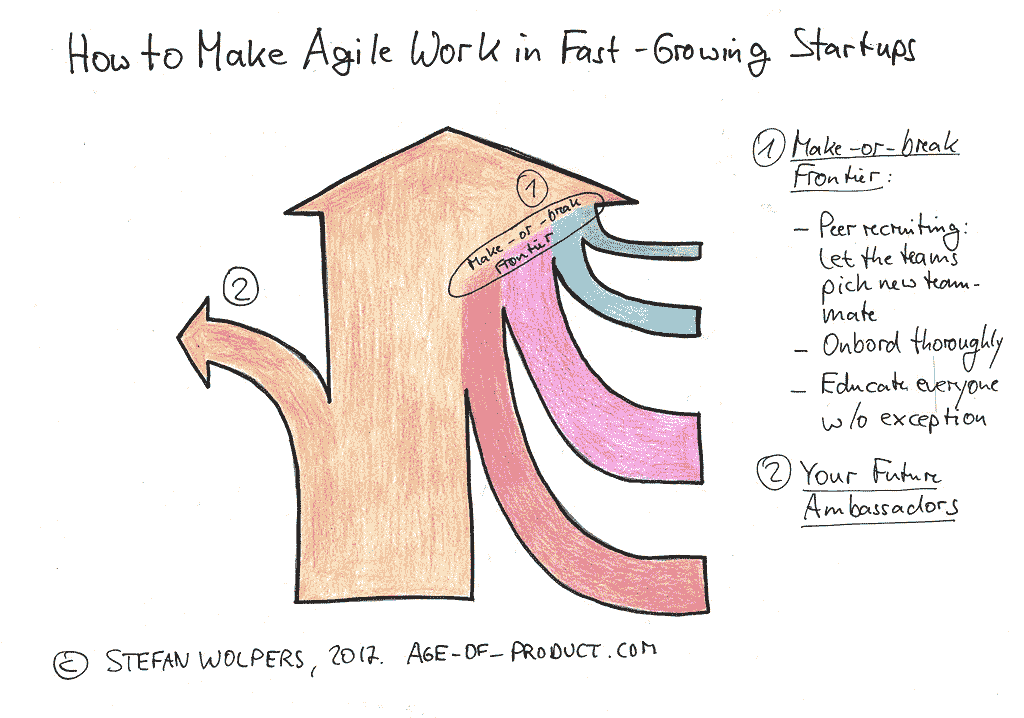 How to Make Agile Work in Fast-Growing Startups
1
Make-or-break
Frontier
2
1 Make-or-break
Frontier:
- Peer recruiting:
let the teams
pick new team-
mate
- Onbord thoroughly
- Educate everyone
w/o exception
2 Your Future
Ambassadors
© STEFAN WOLPERS, 2017. AGE-OF-PRODUCT.COM